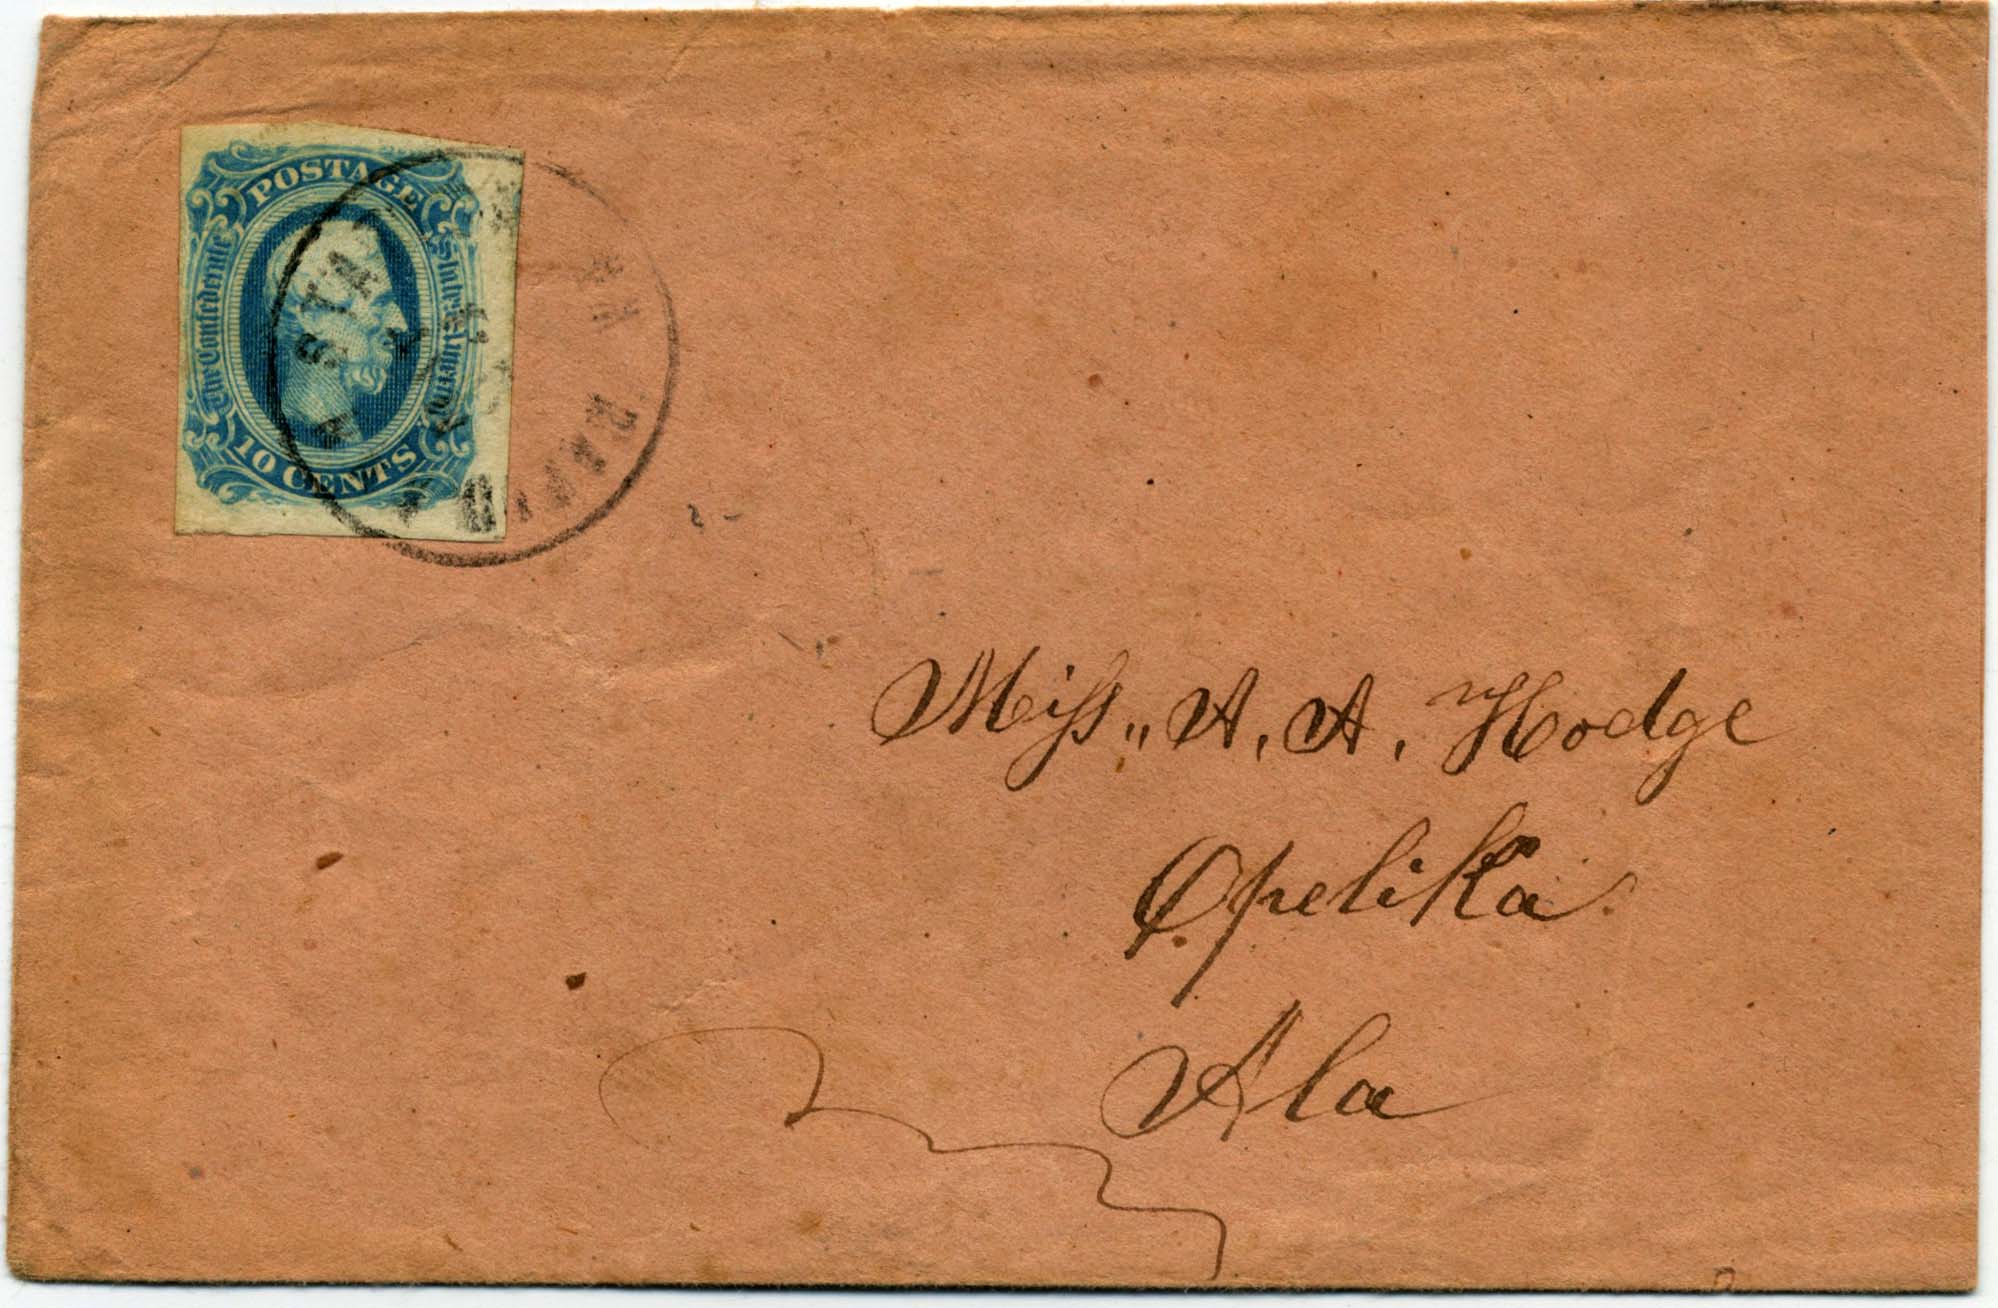 POSTAGE
The Confederate
States of America
10 CENTS
Miss,, A, A, Hodge
Opelika
Ala